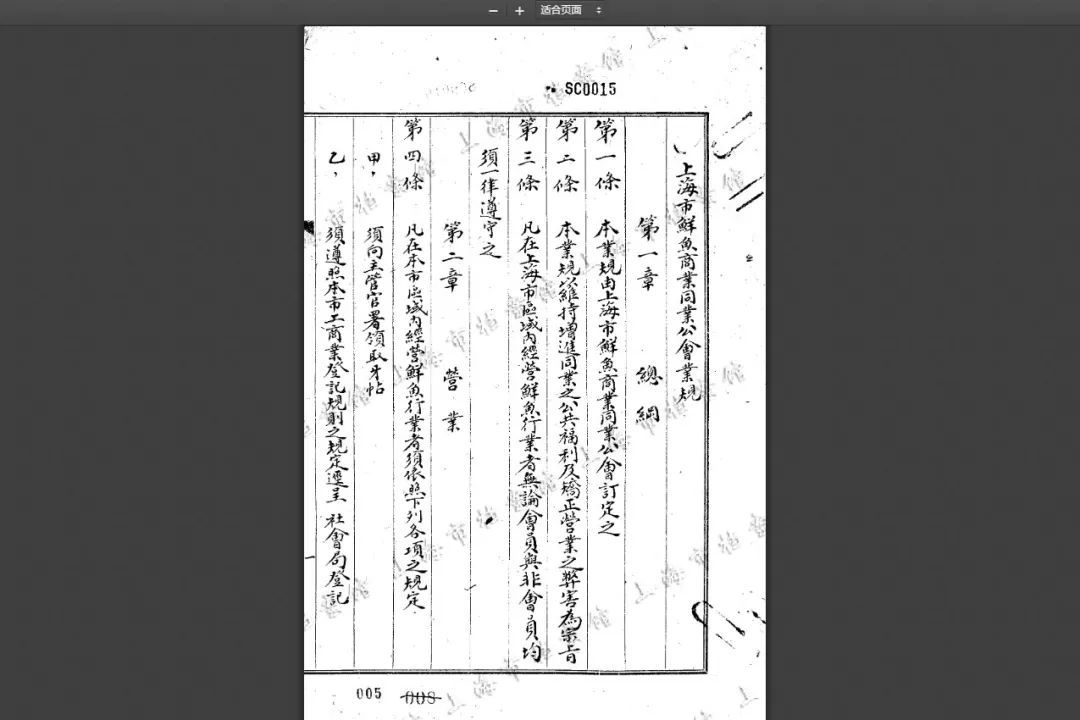 适合页面
SC0015
上海市鮮魚商業同業公會業規
第一章 總綱
第一條 本業規由上海市鮮魚商業同業公會訂定之
第二條 本業規以維持增進同業之公共福利及矯正營業之弊害為宗旨
第三條 凡在上海市區域內經營鮮魚行業者無論會員與非會員均
須一律遵守之
第二章 營業
第四條 凡在本市區域內經營鮮魚行業者須依照下列各項之規定
甲, 須向主管官署領取牙帖
乙, 須遵照本市工商業登記規則之規定逕呈 社會局登記
005 008